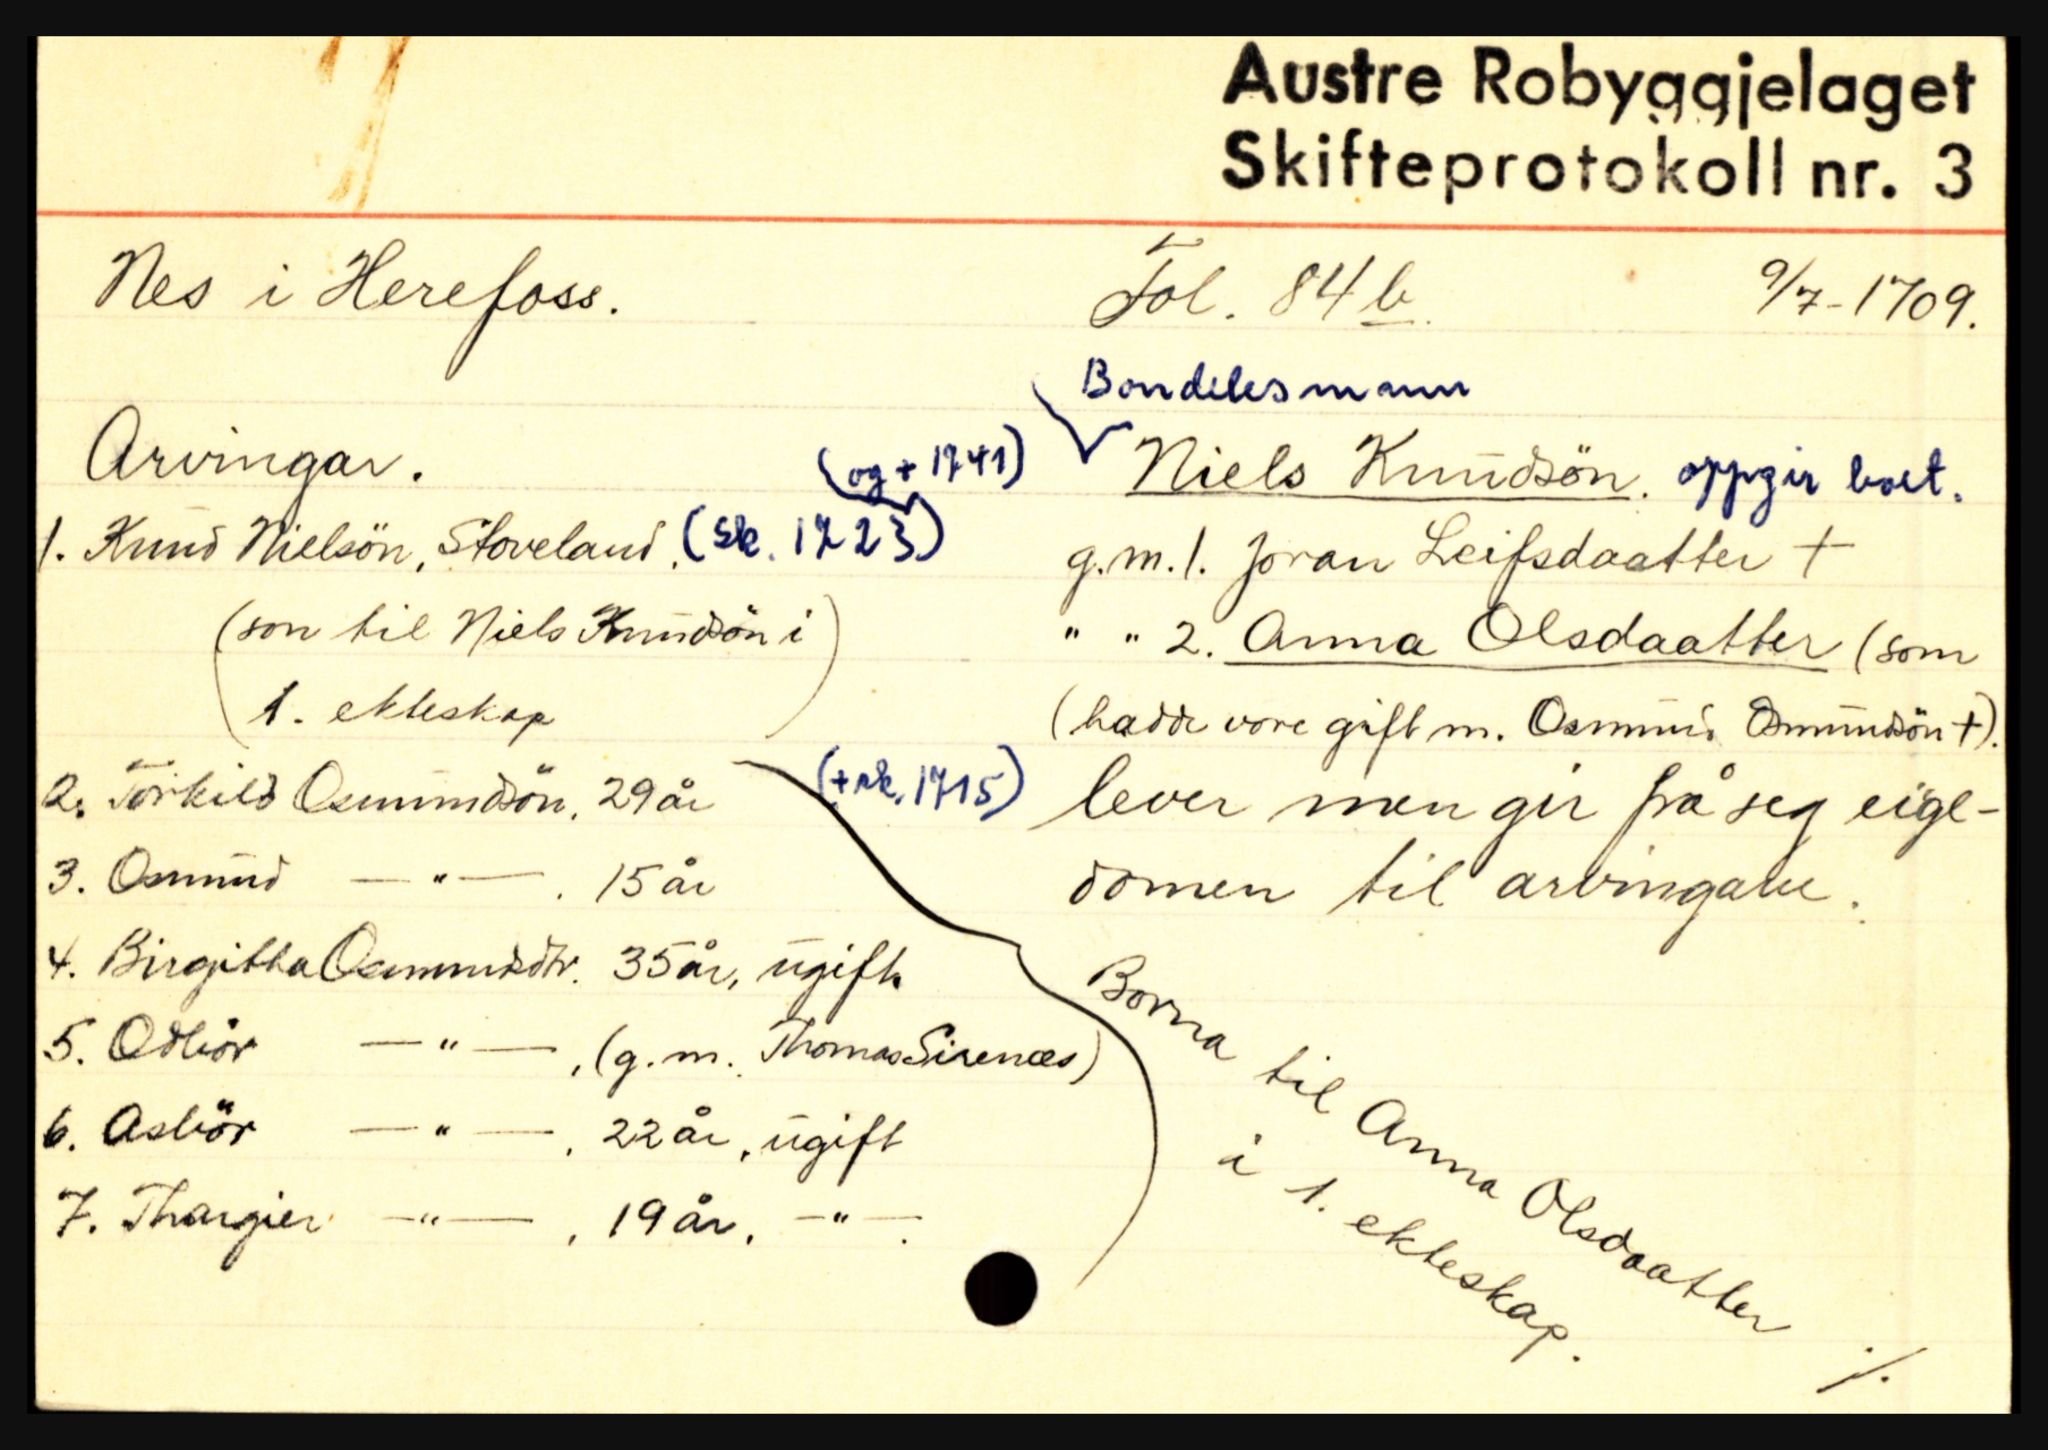 Austre Robyggjelaget
Skifteprotokoll nr. 3
Nes i Herefoss.
Fol. 84 b.
9/7-1709.
Arvingar.
1. Knud Nielsön, Stoveland. (sk. 1723)
(og + 1741)
(son til Niels Knudsön i
1. ekteskap)
2. Torkild Osmundsön, 29 år (+ sk. 1715)
3. Osmund —"—, 15 år
4. Birgitta Osmundsdtr. 35 år, ugift.
5. Odbör —"—, (g.m. Thomas Sirenæs)
6. Asbör —"—, 22 år, ugift
7. Thargier —"—, 19 år, —"—.
Bondelesmann
Niels Knudsön. oppgir boet.
g.m. 1. Joran Leifsdaatter +
" " 2. Anna Olsdaatter (som
(hadde vore gift m. Osmund Osmundsön +).
lever men gir frå seg eige-
domen til arvingane.
Borna til Anna Olsdaatter
i 1. ekteskap.
./.